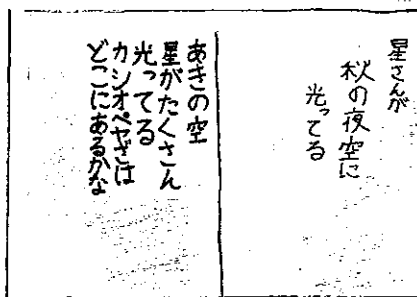 星さんが
秋の夜空に
光ってる
あきの空
星がたくさん
光ってる
カシオペヤざは
どこにあるかな